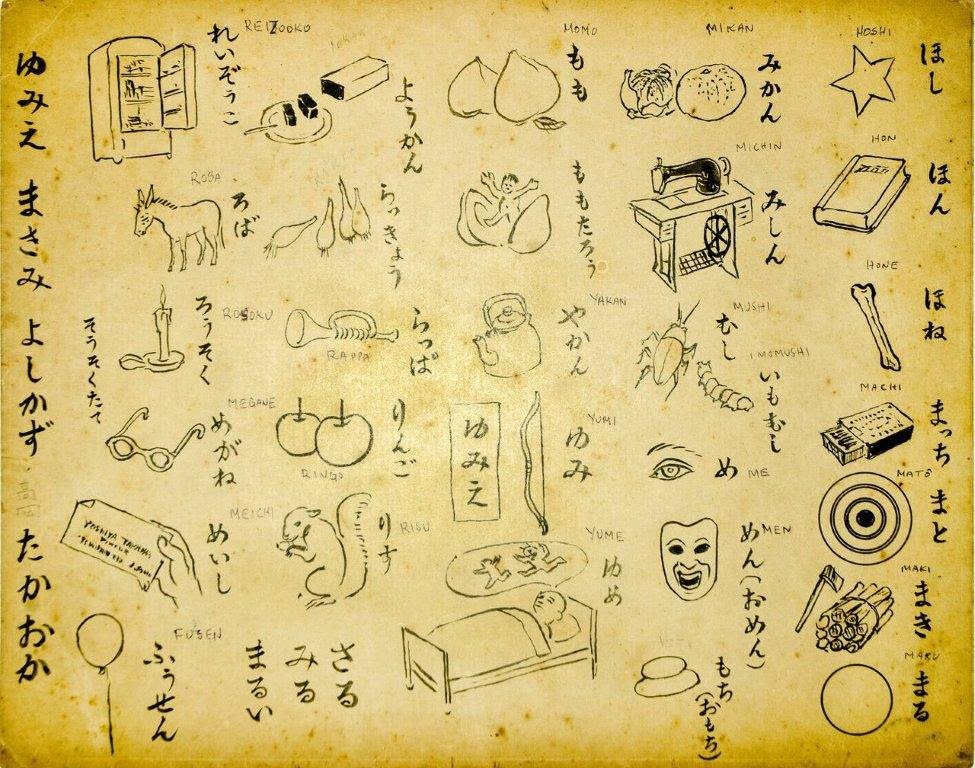 ほし
HOSHI
ほん
HON
ほね
HONE
まっち
MACHI
まと
MATO
まき
MAKI
まる
MARU
みかん
MIKAN
みしん
MICHIN
むし
MUSHI
いもむし
IMOMUSHI
め
ME
めん(おめん)
MEN
もち(おもち)
もも
MOMO
ももたろう
やかん
YAKAN
ゆみ
YUMI
ゆみえ
ゆめ
YUME
ようかん
らっきょう
らっぱ
RAPPA
りんご
RINGO
りす
RISU
さる
みる
まるい
れいぞうこ
REIZOOKO
ろば
ROBA
ろうそく
ROSOKU
めがね
MEGANE
めいし
MEICHI
ふうせん
FUSEN
ゆみえ まさみ よしかず たかおか